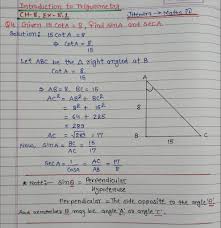 Introduction to Trigonometry
CH-8, EX-8.1
Q4. Given 15 cot A = 8, find sin A and sec A.
Solution: 15 cot A = 8
⇒ cot A = 8/15
Let ABC be the △ right angled at B
Cot A = 8/15
⇒ AB = 8, BC = 15
AC² = AB² + BC²
= 8² + 15²
= 64 + 225
= 289
AC = √289 = 17
Now, Sin A = BC/AC = 15/17
Sec A = 1/cos A = AC/AB = 17/8
A
8
B
15
C
* Note:- Sin θ = Perpendicular/Hypotenuse
Perpendicular = The side opposite to the angle 'θ'.
And remember θ may be angle 'A' or angle 'C'.